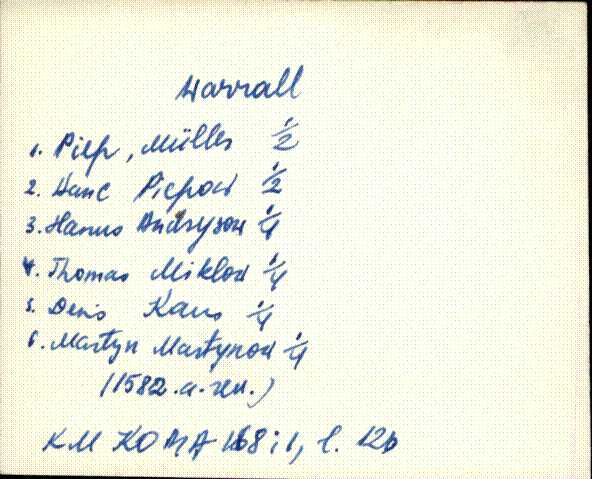 Warrall
1. Piep, Müller 1/2
2. Hanc Piepow 1/2
3. Hanus Andrysow 1/4
4. Thomas Miklow 1/4
5. Denis Kaus 1/4
6. Martyn Martynow 1/4
(1582.a.rev.)
KM KOMA 168:1, l. 12b